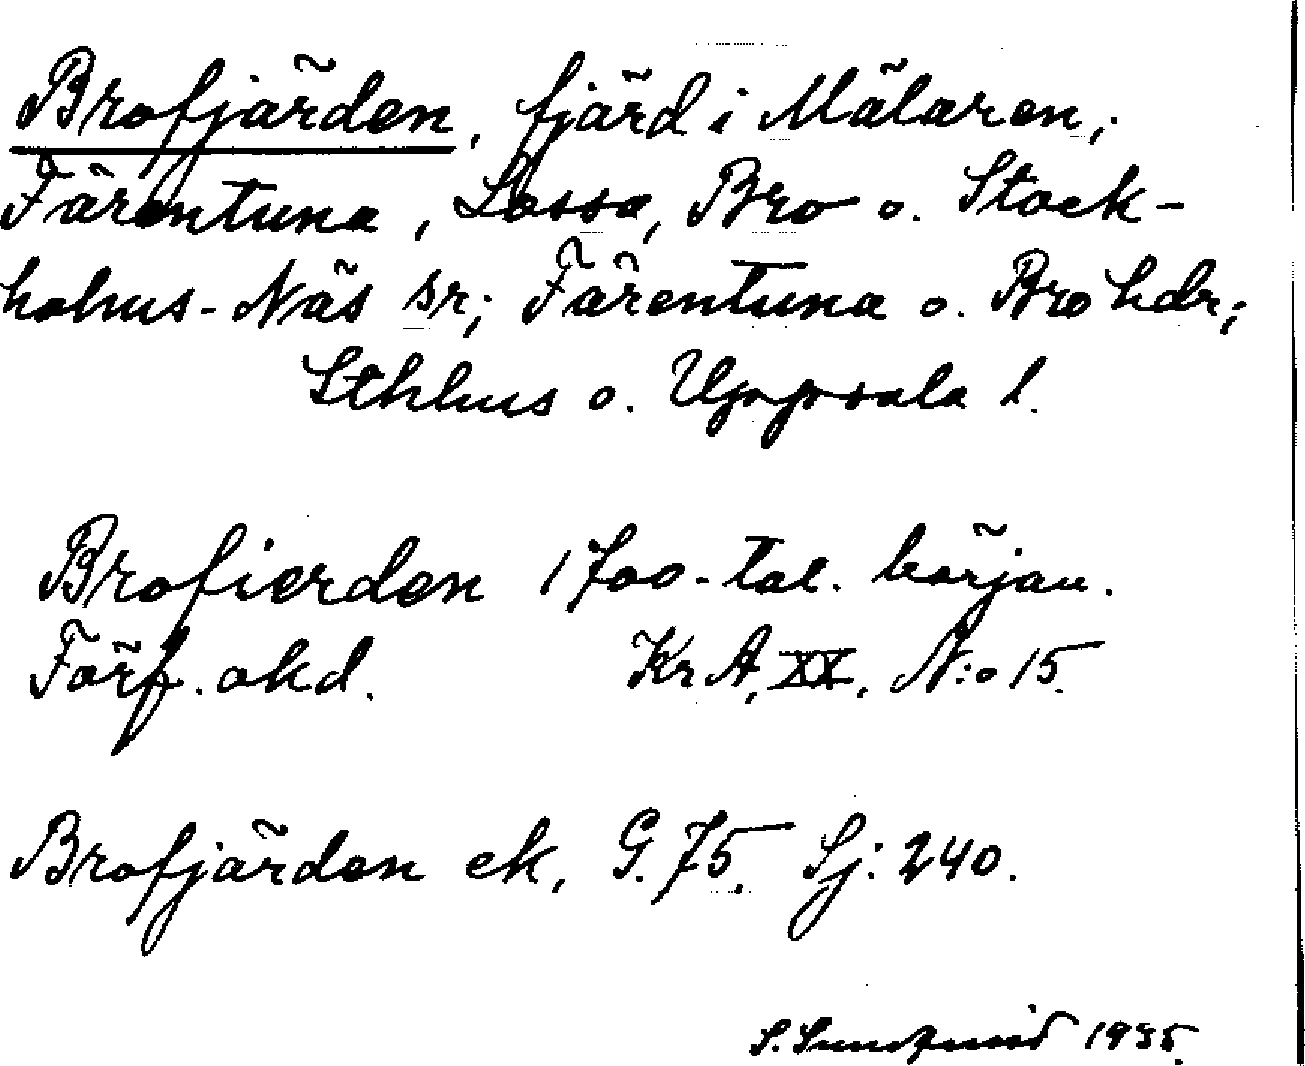 Brofjärden, fjärd i Mälaren;
Färentuna, Lossa, Bro o. Stock-
holms-Näs sr; Färentuna o. Bro hdr;
Sthlms o. Uppsala l.
Brofierden 1700-tal. början.
Förf. okd. KrA, XX, N:o 15.
Brofjärden ek, G. 75. Sj: 240.
S. Sundqvist 1935.